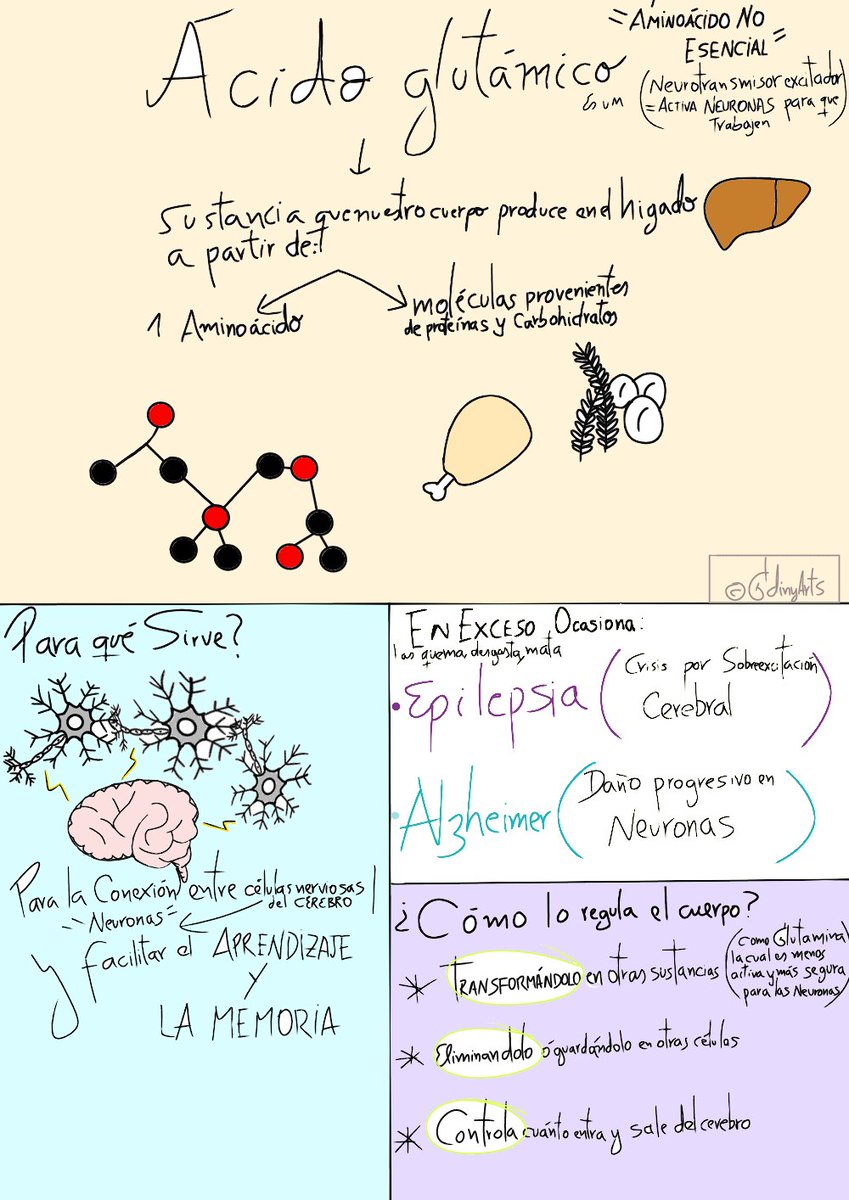 Ácido glutámico
Es un
= AMINOÁCIDO NO
ESENCIAL =
(Neurotransmisor excitador
= ACTIVA NEURONAS para que
Trabajen)
↓
Sustancia que nuestro cuerpo produce en el hígado
a partir de:
1 Aminoácido
moléculas provenientes
de proteínas y Carbohidratos
© GdinyArts
Para qué Sirve?
Para la Conexión entre células nerviosas
del CEREBRO
= Neuronas =
y facilitar el APRENDIZAJE
Y
LA MEMORIA
EN EXCESO Ocasiona:
las quema, desgasta, mata
• Epilepsia (Crisis por Sobreexcitación
Cerebral)
• Alzheimer (Daño progresivo en
Neuronas)
¿Cómo lo regula el cuerpo?
* TRANSFORMÁNDOLO en otras sustancias (como Glutamina
la cual es menos
activa y más segura
para las Neuronas)
* Eliminandolo ó guardándolo en otras células
* Controla cuánto entra y sale del cerebro